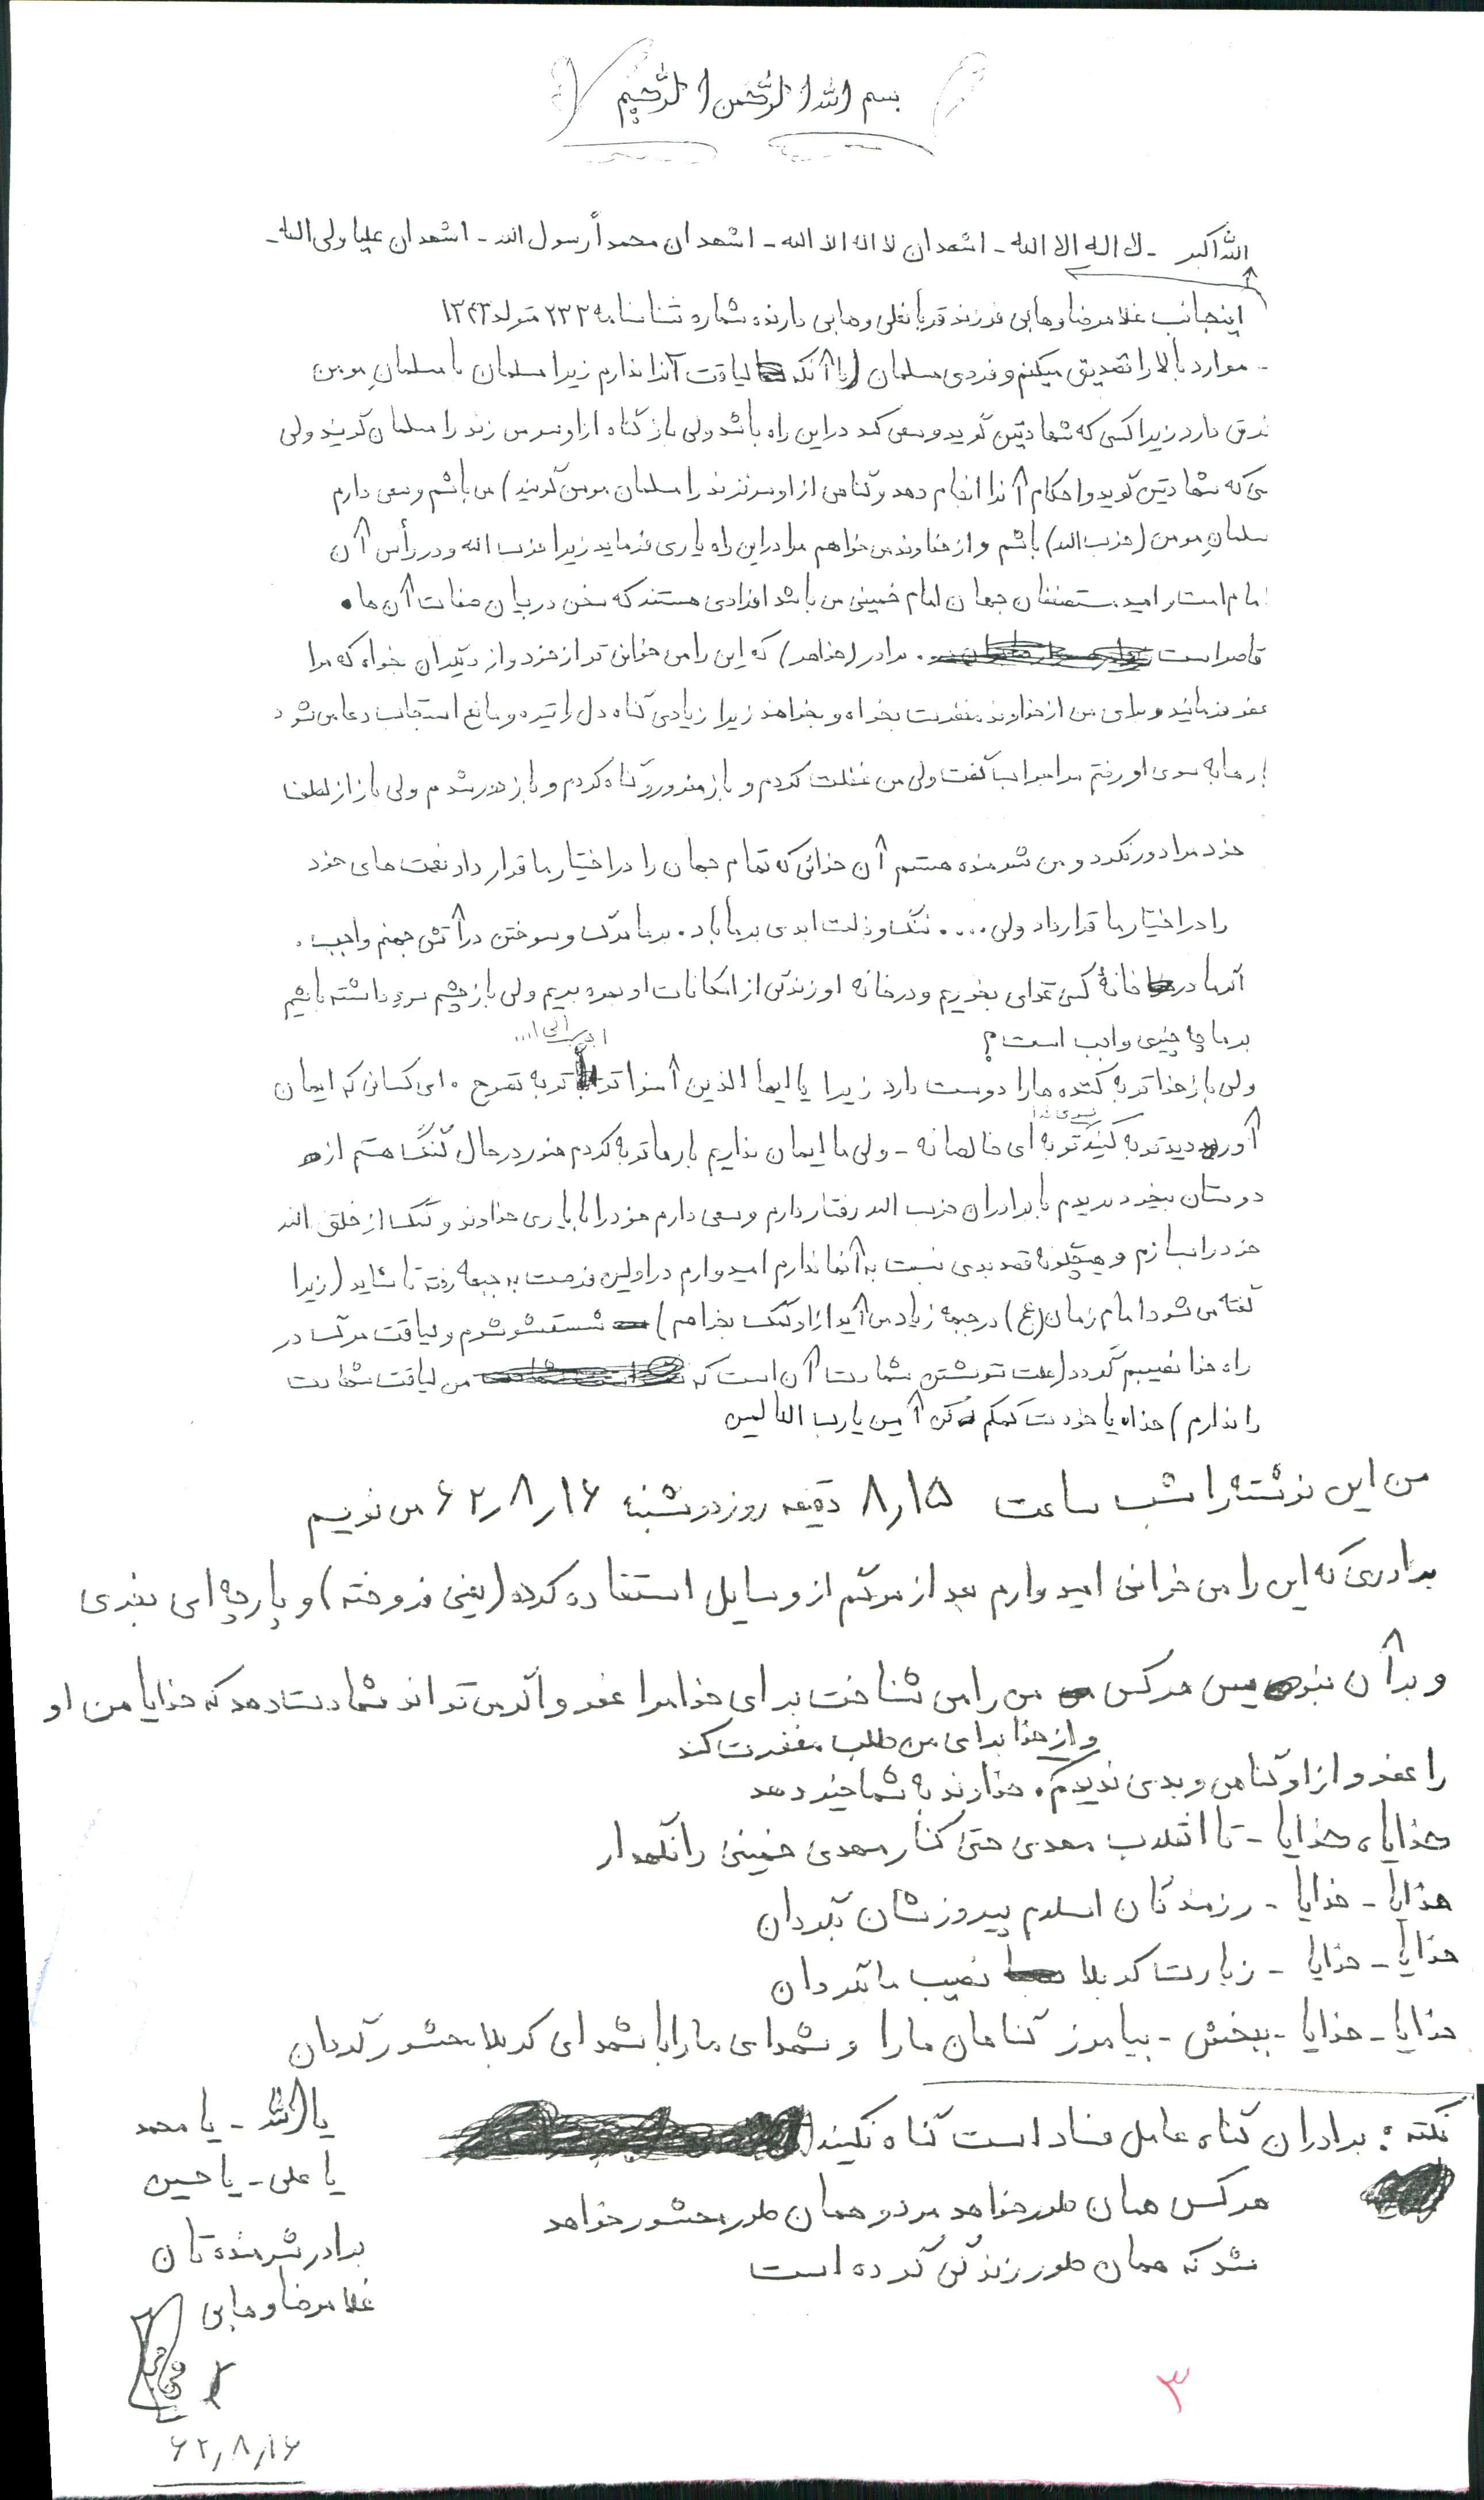 بسم الله الرحمن الرحیم
الله اکبر - لا اله الا الله - اشهد ان لا اله الا الله - اشهد ان محمداً رسول الله - اشهد ان علیا ولی الله -
اینجانب غلامرضا وهابی فرزند قربانعلی وهابی دارنده شماره شناسنامه ۲۳۳ متولد ۱۳۴۳
موارد بالا را تصدیق میکنم و فردی مسلمان (با آنکه لیاقت آنرا ندارم زیرا مسلمان با مسلمانِ مومن
فرق دارد زیرا کسی که شهادتین گوید و سعی کند در این راه باشد ولی باز گناه از او سر می زند را مسلمان گویند ولی
کسی که شهادتین گوید و احکام آنرا انجام دهد و گناهی از او سر نزند را مسلمان مومن گویند) می باشم و سعی دارم
مسلمانِ مومن (حزب الله) باشم و از خداوند می خواهم مرا در این راه یاری فرماید زیرا حزب الله و در رأس آن
امام امت و امید مستضعفان جهان امام خمینی می باشد افرادی هستند که سخن در بیان صفات آن ها
قاصر است . برادر (خواهر) که این را می خوانی تو از خود و از دیگران بخواه که مرا
عفو فرمائید و برای من از خداوند مغفرت بخواه و بخواهند زیرا زیادی گناه دل را تیره و مانع استجابت دعا می شود
بارها به سوی او رفتم مرا جواب گفت ولی من غفلت کردم و باز مغرور و گناه کردم و باز دور شدم ولی باز از لطف
خود مرا دور نکرد و من شرمنده هستم آن خدائی که تمام جهان را در اختیار ما قرار داد نعمت های خود
را در اختیار ما قرار داد ولی .... ننگ و ذلت ابدی بر ما باد . بر ما مرگ و سوختن در آتش جهنم واجب .
اگر ما در خانهٔ کسی غذای بخوریم و در خانه او زندگی از امکانات او بهره بریم ولی باز چشم سوء داشته باشیم
بر ما چه چیزی واجب است؟
ولی باز خدا توبه کننده ها را دوست دارد زیرا یا ایها الذین آمنوا توبوا الی ا... توبه نصوح . ای کسانی که ایمان
آوردید توبه کنید بسوی خدا توبه ای خالصانه - ولی ما ایمان نداریم بارها توبه کردم هنوز در حال گنگ هستم از
دوستان بیخود بریدم با برادران حزب الله رفتار دارم و سعی دارم خود را با یاری خداوند و کمک از خلق الله
خود را بسازم و هیچگونه قصد بدی نسبت به آنها ندارم امیدوارم در اولین فرصت به جبهه رفته تا شاید (زیرا
گفته می شود امام زمان (عج) در جبهه زیاد می آید از او کمک بخواهم) شستشو شوم و لیاقت مرگ در
راه خدا نصیبم گردد (علت ننوشتن شهادت آن است که من لیاقت شهادت
را ندارم) خداه یا خودت کمکم کن آمین یا رب العالمین
من این نوشته را شب ساعت ۸٫۱۵ دقیقه روز دوشنبه ۶۲٫۸٫۱۶ می نویسم
برادری که این را می خوانی امیدوارم بعد از مرگم از وسایل استفاده کرده (یعنی فروخته) و پارچه ای بخری
و بر آن بنویس هر کس من را می شناخت برای خدا مرا عفو و اگر می تواند شهادت دهد که خدایا من او
و از خدا برای من طلب مغفرت کند
را عفو و از او گناهی و بدی ندیدم . خداوند به شما خیر دهد
خدایا، خدایا - تا انقلاب مهدی حتی کنار مهدی خمینی را نگهدار
خدایا - خدایا - رزمندگان اسلام پیروزشان بگردان
خدایا - خدایا - زیارت کربلا نصیب ما بگردان
خدایا - خدایا - ببخش - بیامرز گناهان ما را و شهدای ما را با شهدای کربلا محشور گردان
نکته : برادران گناه عامل فساد است گناه نکنید
هر کس همان طور خواهد مرد و همان طور محشور خواهد
شد که همان طور زندگی کرده است
یا الله - یا محمد
یا علی - یا حسین
برادر شرمنده تان
غلامرضا وهابی
۶۲٫۸٫۱۶
۳